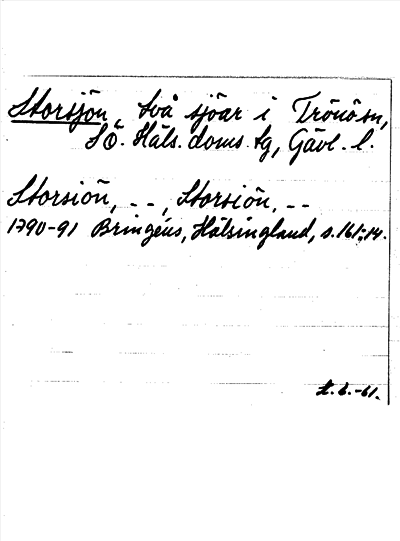 Storsjön, två sjöar i Trönö sn,
Sö. Häls. doms. tg, Gävl. l.
Storsiön, - - , Storsiön, - -
1790-91 Bringéus, Hälsingland, s. 161; 14.
-61.